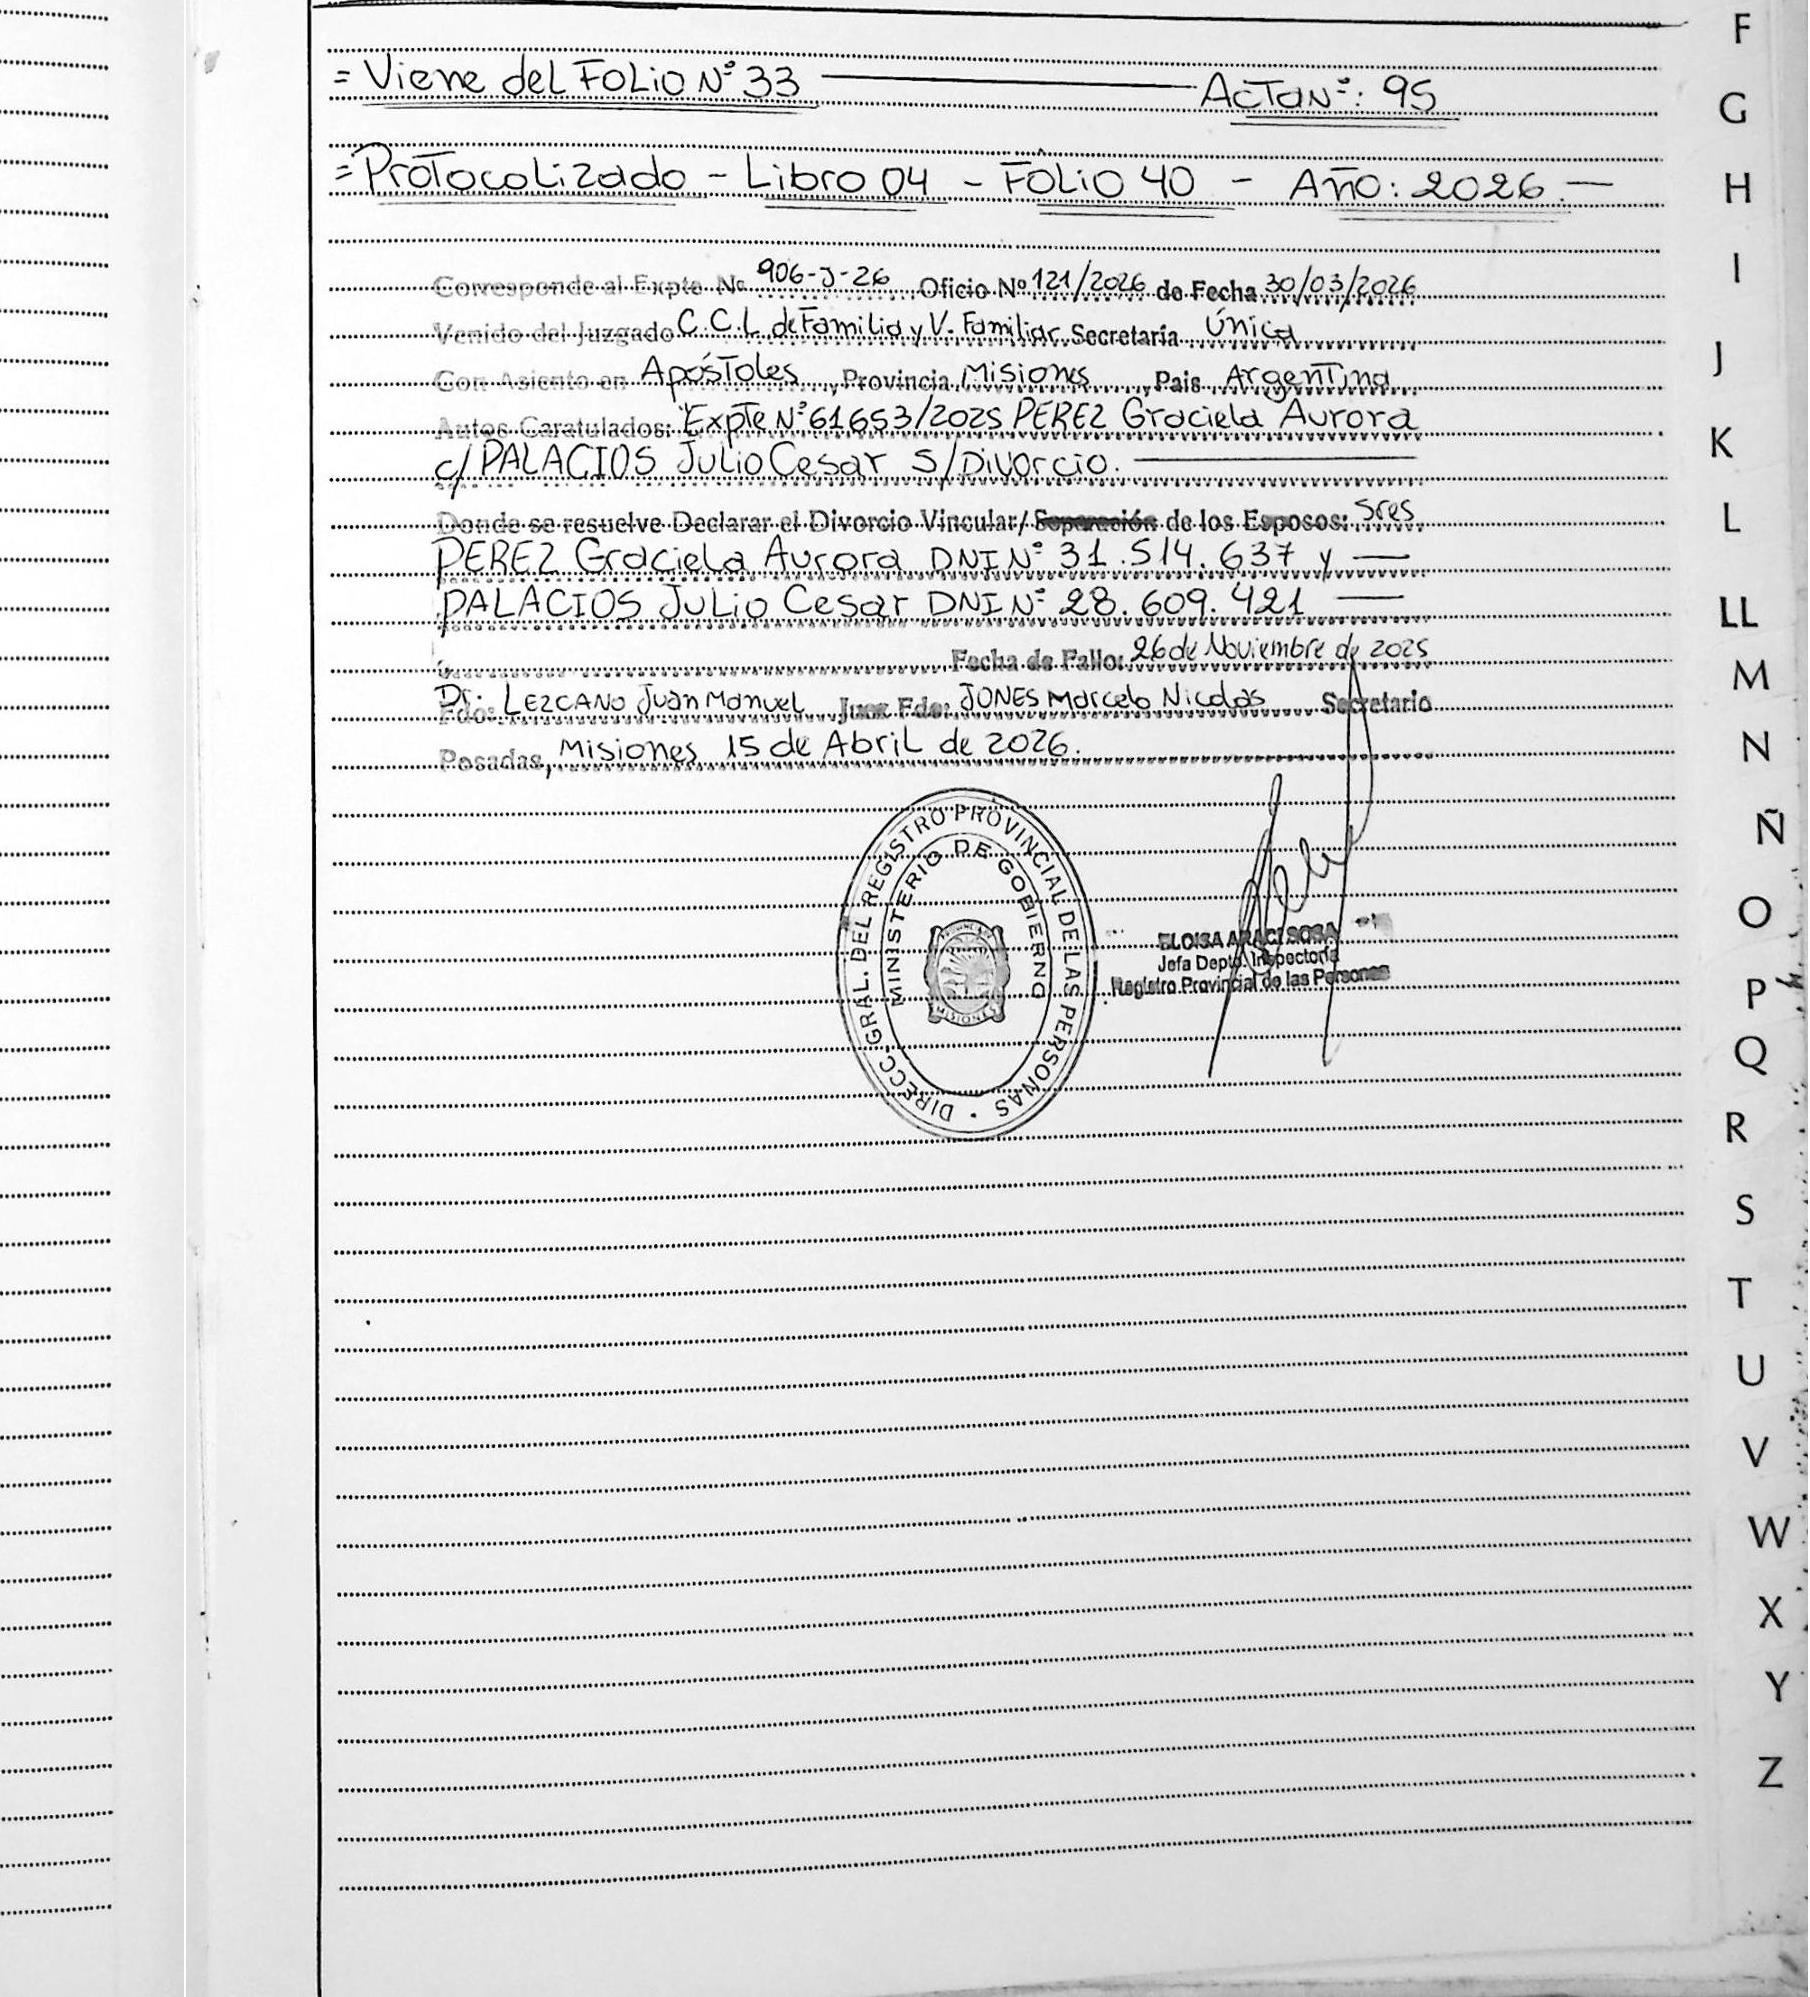 = Viene del Folio N° 33 ——— Acta N°: 95
= Protocolizado - Libro 04 - Folio 40 - Año: 2026. —
Corresponde al Expte Nº 906-J-26 Oficio Nº 121/2026 de Fecha 30/03/2026
Venido del Juzgado C.C.L. de Familia y V. Familiar Secretaría Única
Con Asiento en Apóstoles, Provincia Misiones, Pais Argentina
Autos Caratulados: "Expte N° 61653/2025 PEREZ Graciela Aurora
c/ PALACIOS Julio Cesar S/Divorcio. ———
Donde se resuelve Declarar el Divorcio Vincular/ Separación de los Esposos: Sres
PEREZ Graciela Aurora DNI N° 31.514.637 y —
PALACIOS Julio Cesar DNI N° 28.609.421 —
Fecha de Fallo: 26 de Noviembre de 2025
Fdo: Dr. LEZCANO Juan Manuel Juez Fdo: JONES Marcelo Nicolas Secretario
Posadas, Misiones 15 de Abril de 2026.
DIRECC. GRAL. DEL REGISTRO PROVINCIAL DE LAS PERSONAS
MINISTERIO DE GOBIERNO
MISIONES
ELOISA ARACI SOSA
Jefa Depto. Inspectoría
Registro Provincial de las Personas
F
G
H
I
J
K
L
LL
M
N
Ñ
O
P
Q
R
S
T
U
V
W
X
Y
Z